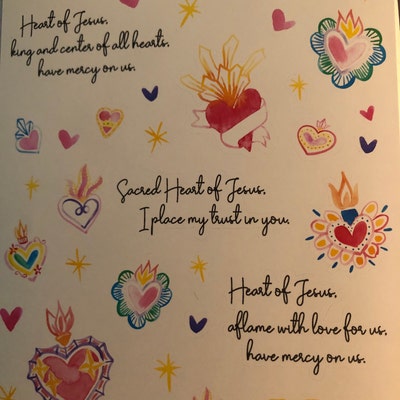 Heart of Jesus,
king and center of all hearts,
have mercy on us.
Sacred Heart of Jesus,
I place my trust in you.
Heart of Jesus,
aflame with love for us,
have mercy on us.